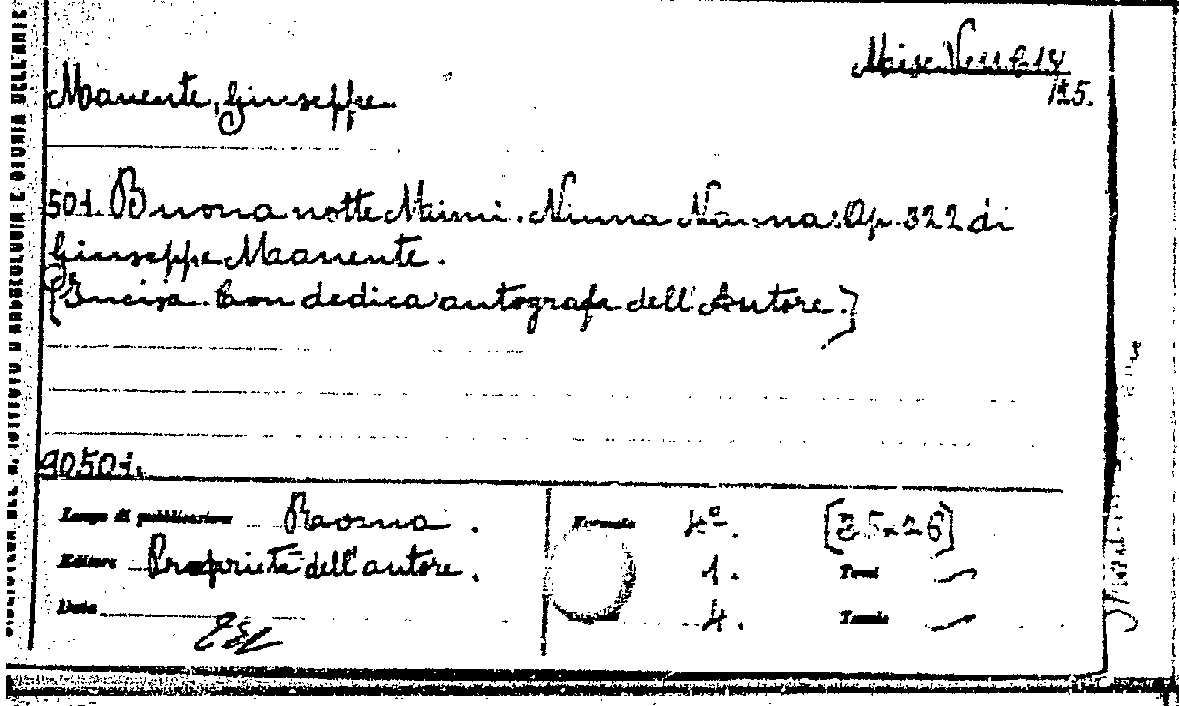 Manente, Giuseppe.
Misc. Vess. C 18
185.
501. Buona notte Mimi. Ninna Nanna. Op. 322 di
Giuseppe Manente.
[Incisa. Con dedica autografa dell'Autore.]
90501.
Luogo di pubblicazione Roma.
Editore Proprietà dell'autore.
Data
Formato 4º.
1.
4.
Tomi
Tavole
BIBLIOTECA DEL R. ISTITUTO D'ARCHEOLOGIA E STORIA DELL'ARTE